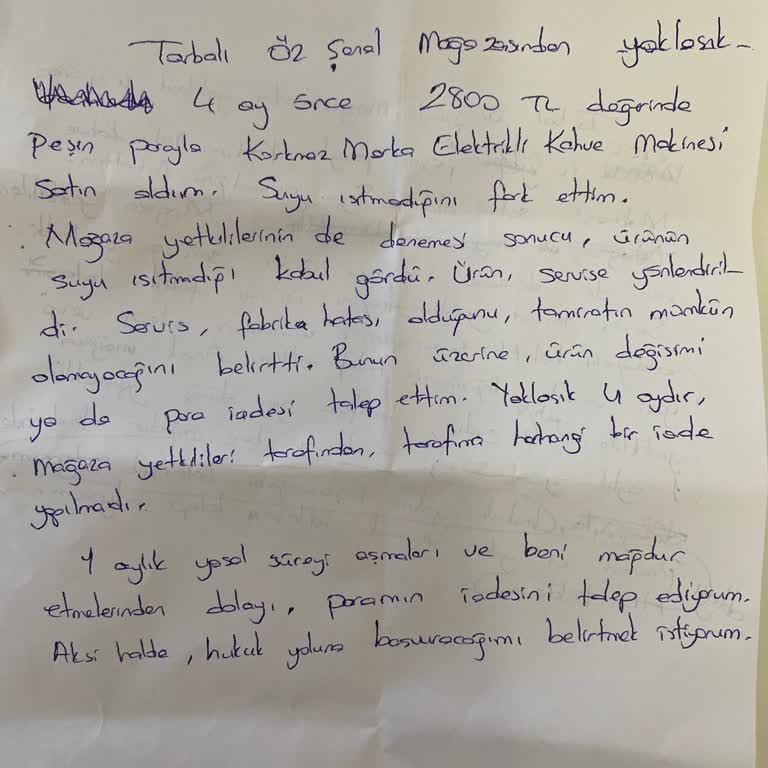 Torbalı Öz Şenal Mağazasından yaklaşık
4 ay önce 2800 TL değerinde
Peşin parayla Korkmaz Marka Elektrikli Kahve Makinesi
satın aldım. Suyu ısıtmadığını fark ettim.
Mağaza yetkililerinin de denemesi sonucu, ürünün
suyu ısıtmadığı kabul gördü. Ürün, servise yönlendiril-
di. Servis, fabrika hatası olduğunu, tamiratın mümkün
olamayacağını belirtti. Bunun üzerine, ürün değişimi
ya da para iadesi talep ettim. Yaklaşık 4 aydır,
mağaza yetkilileri tarafından, tarafıma herhangi bir iade
yapılmadı.
1 aylık yasal süreyi aşmaları ve beni mağdur
etmelerinden dolayı, paramın iadesini talep ediyorum.
Aksi halde, hukuk yoluna başvuracağımı belirtmek istiyorum.